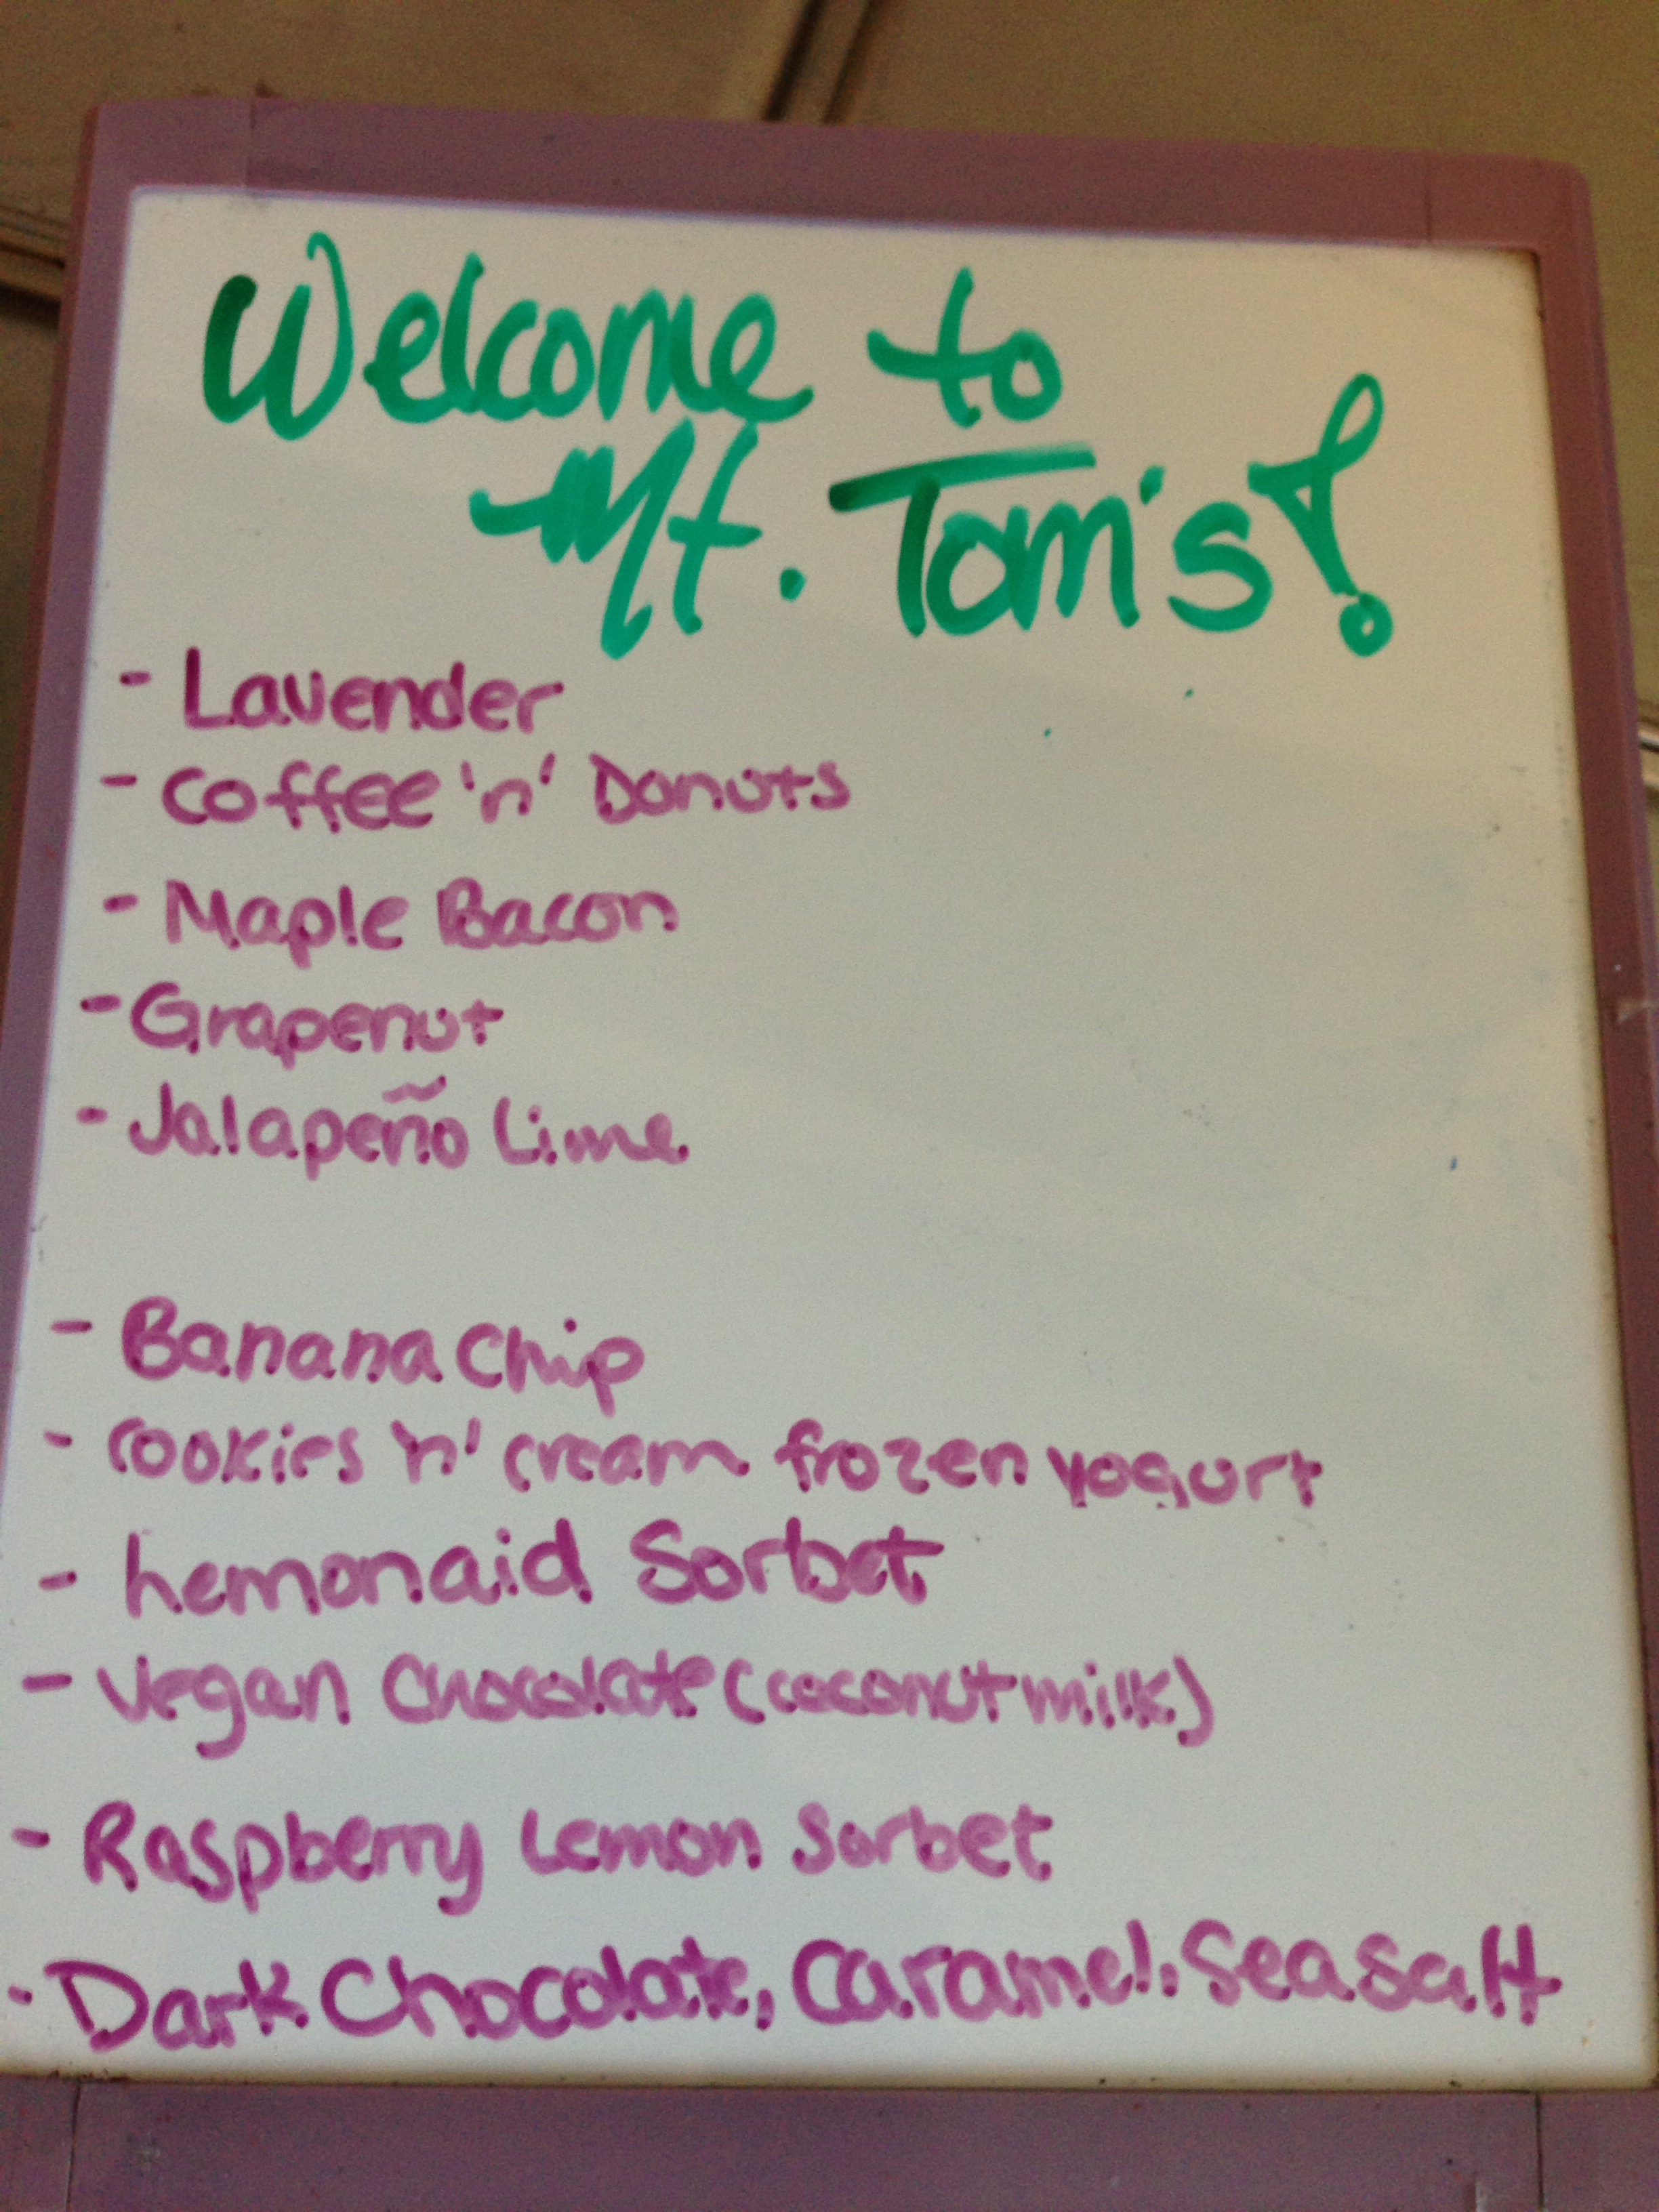 Welcome to
Mt. Tom's!
- Lavender
- Coffee 'n' Donuts
- Maple Bacon
- Grapenut
- Jalapeño Lime
- Banana Chip
- Cookies 'n' cream frozen yogurt
- Lemonaid Sorbet
- Vegan Chocolate (coconut milk)
- Raspberry Lemon Sorbet
- Dark Chocolate, Caramel, Seasalt